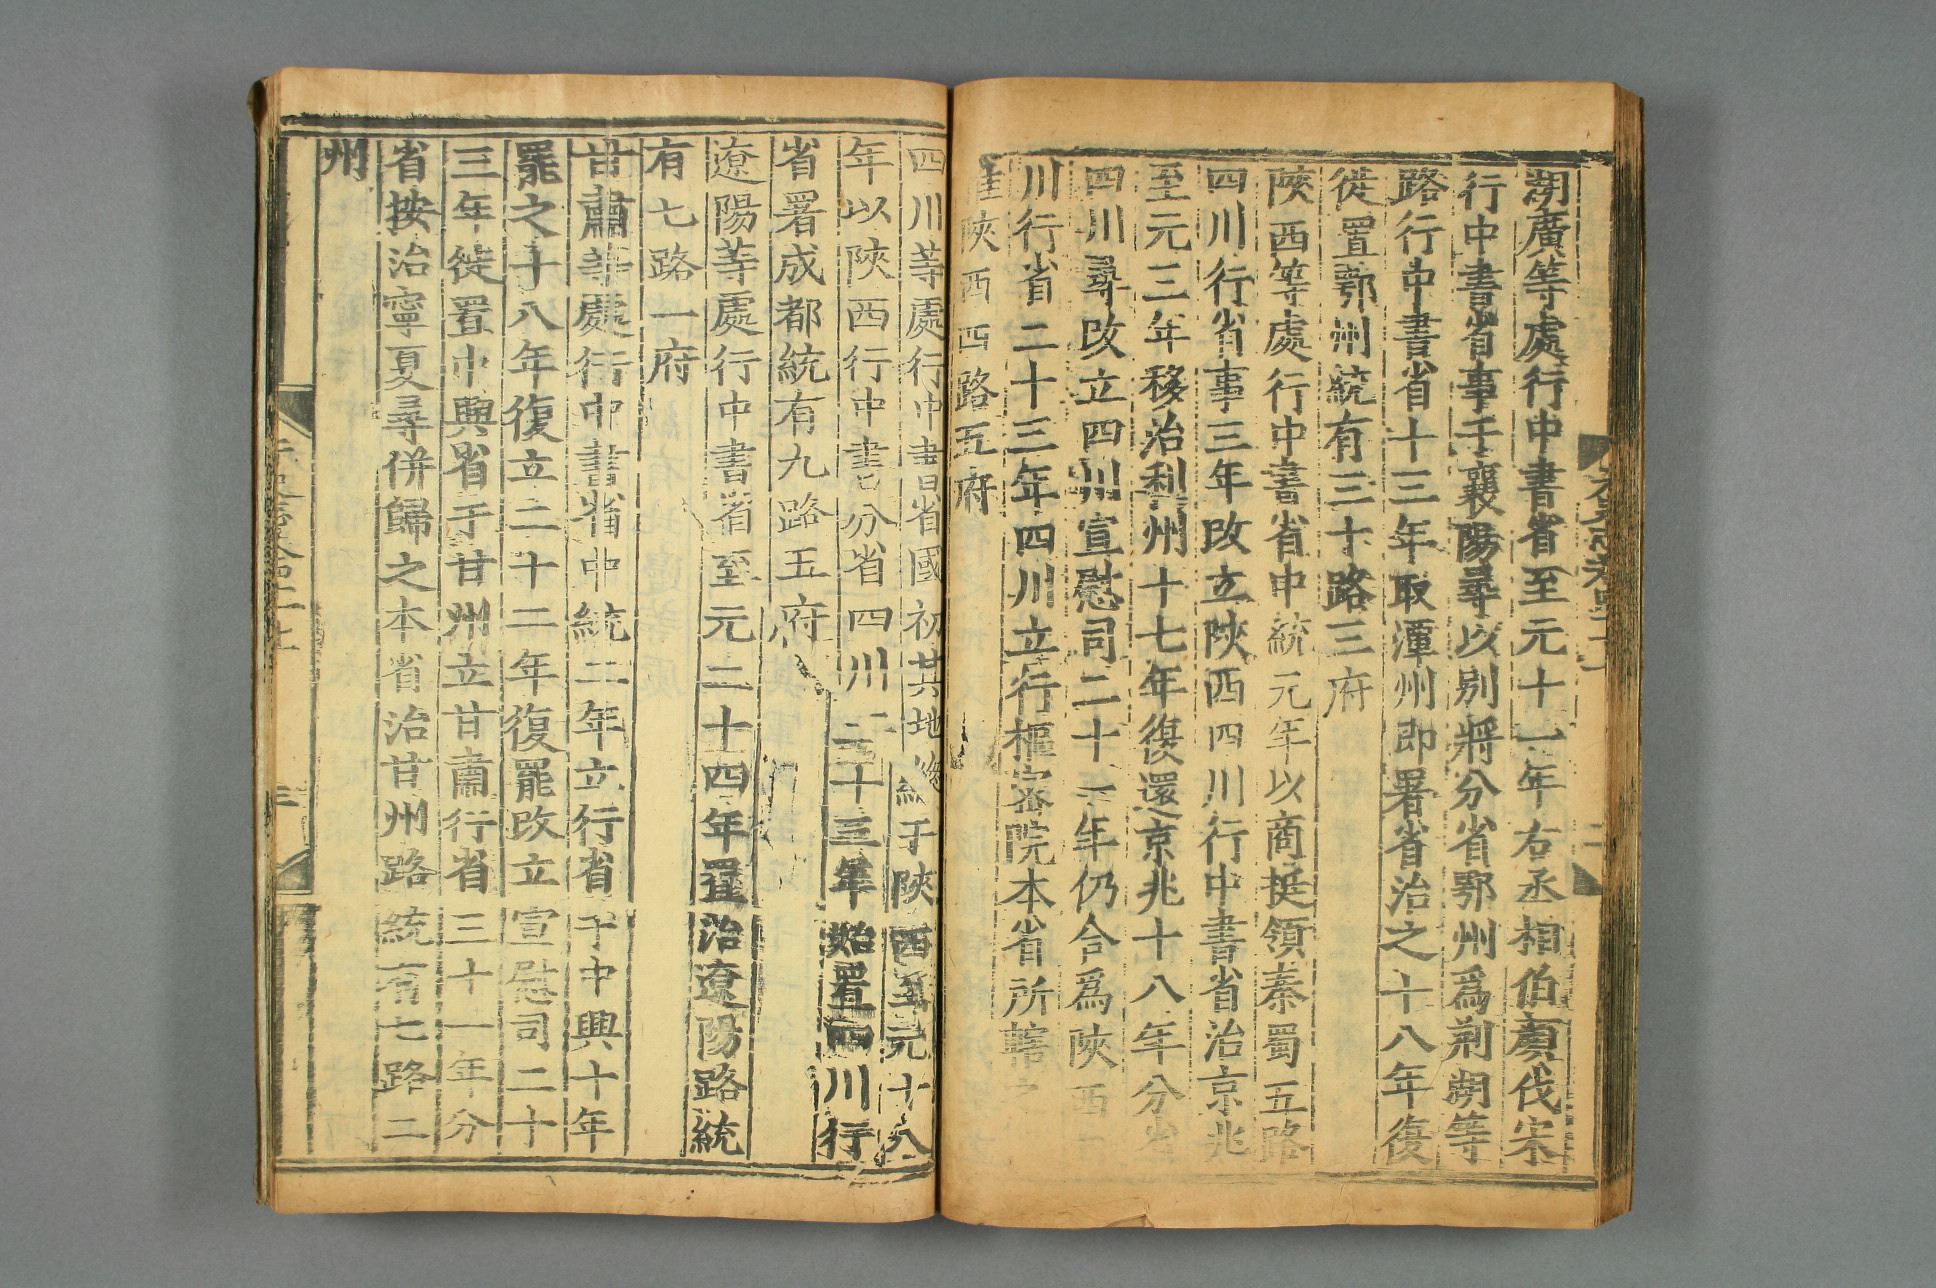 湖廣等處行中書省至元十一年右丞相伯顏伐宋
行中書省事于襄陽尋以別將分省鄂州爲荆湖等
路行中書省十三年取潭州即署省治之十八年復
徙置鄂州統有三十路三府
陝西等處行中書省中統元年以商挺領秦蜀五路
四川行省事三年改立陝西四川行中書省治京兆
至元三年移治利州十七年復還京兆十八年分省
四川尋改立四川宣慰司二十一年仍合爲陝西四
川行省二十三年四川立行樞密院本省所轄之
陝西四路五府
四川等處行中書省國初其地總于陝西至元十八
年以陝西行中書分省四川二十三年始置四川行
省署成都統有九路五府
遼陽等處行中書省至元二十四年置治遼陽路統
有七路一府
甘肅等處行中書省中統二年立行省于中興十年
罷之十八年復立二十二年復罷改立宣慰司二十
三年徙置中興省于甘州立甘肅行省三十一年分
省按治寧夏尋併歸之本省治甘州路統有七路二
州
三